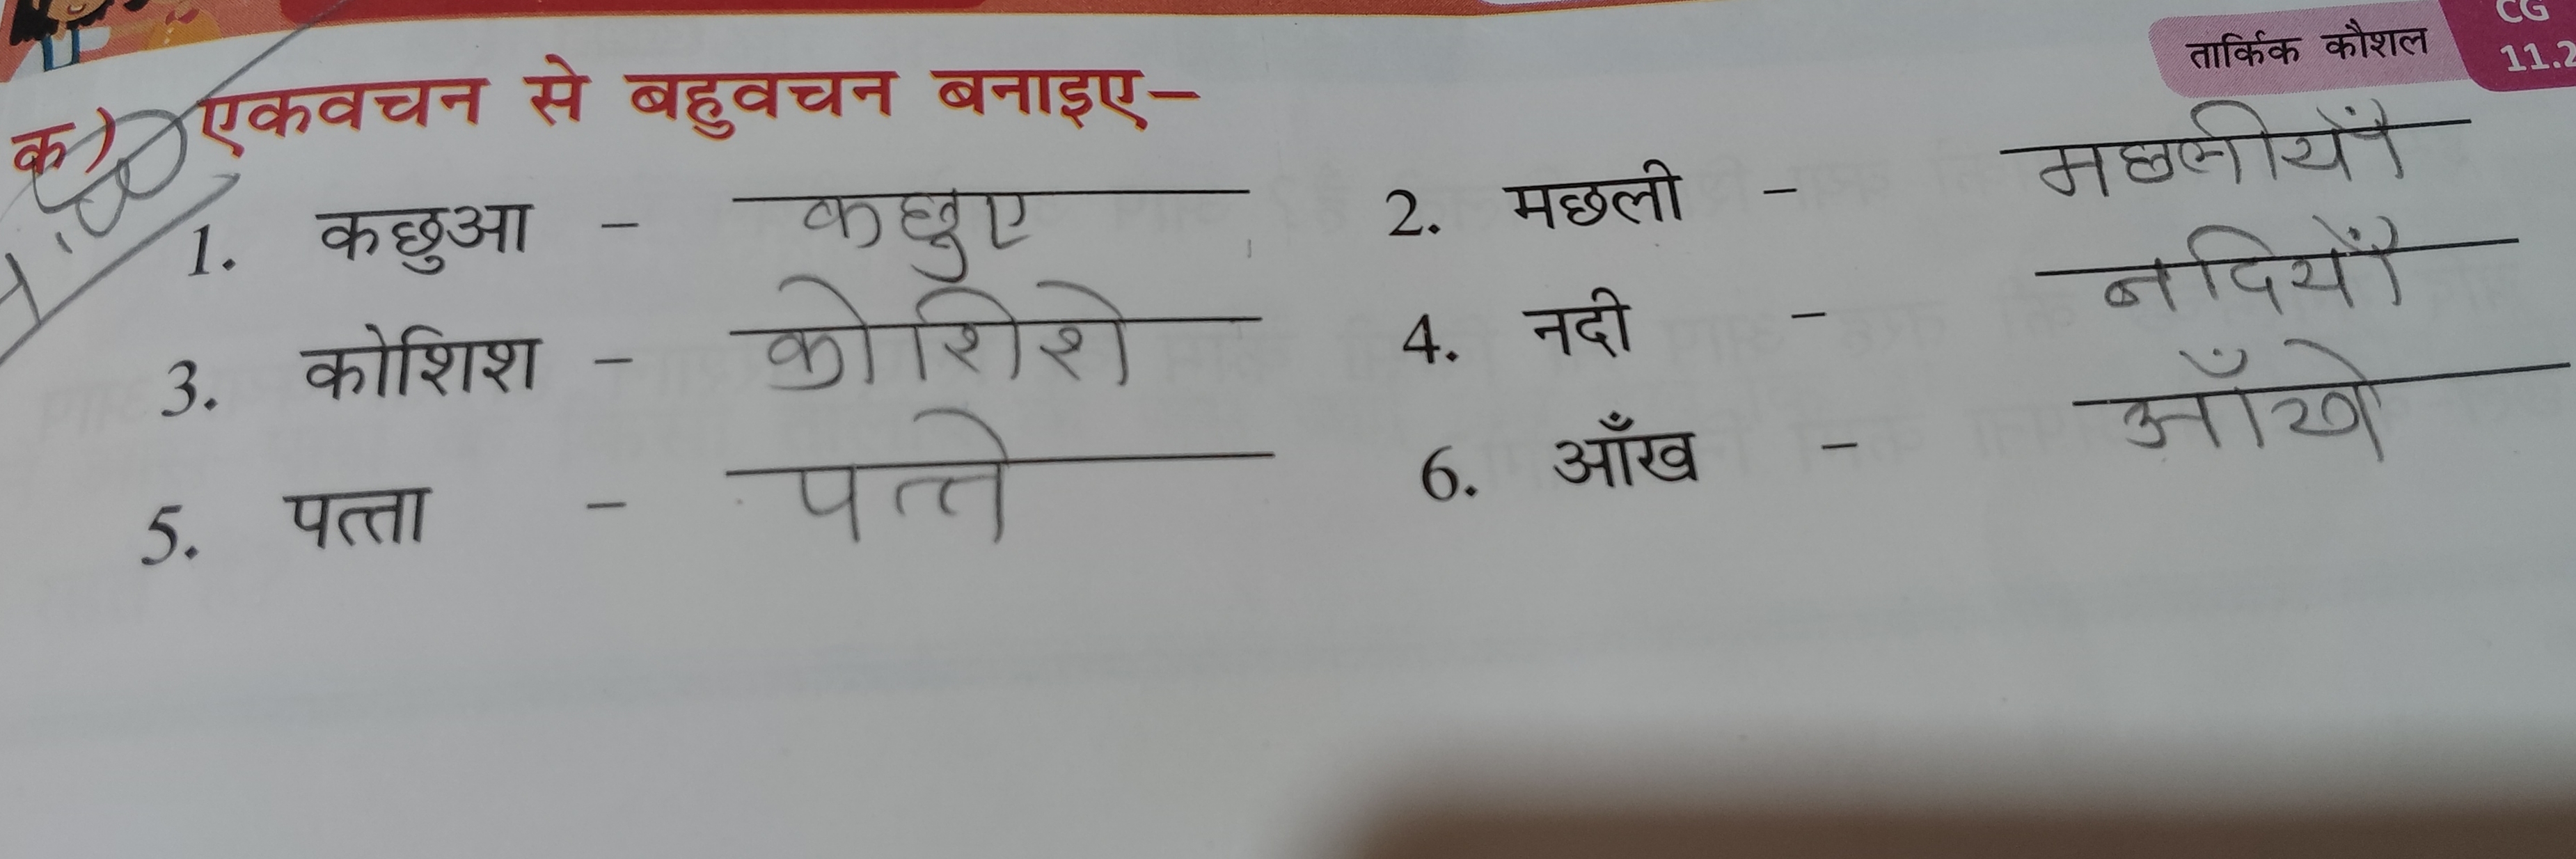 तार्किक कौशल CG 11.2
क) एकवचन से बहुवचन बनाइए–
1. कछुआ – कछुए 2. मछली – मछलीयाँ
3. कोशिश – कोशिशे 4. नदी – नदियाँ
5. पत्ता – पत्ते 6. आँख – आँखे